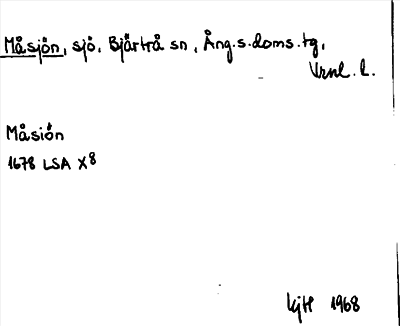 Måsjön, sjö, Bjärtrå sn, Ång.s.doms.tg,
Vrnl. l.
Måsiön
1678 LSA X8
KjH 1968